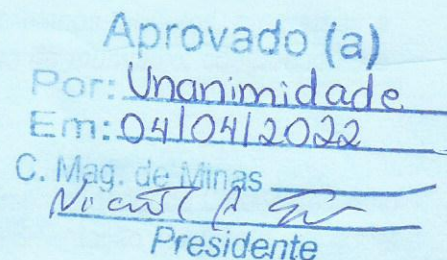 Aprovado (a)
Por: Unanimidade
Em: 04/04/2022
C. Mag. de Minas
Presidente